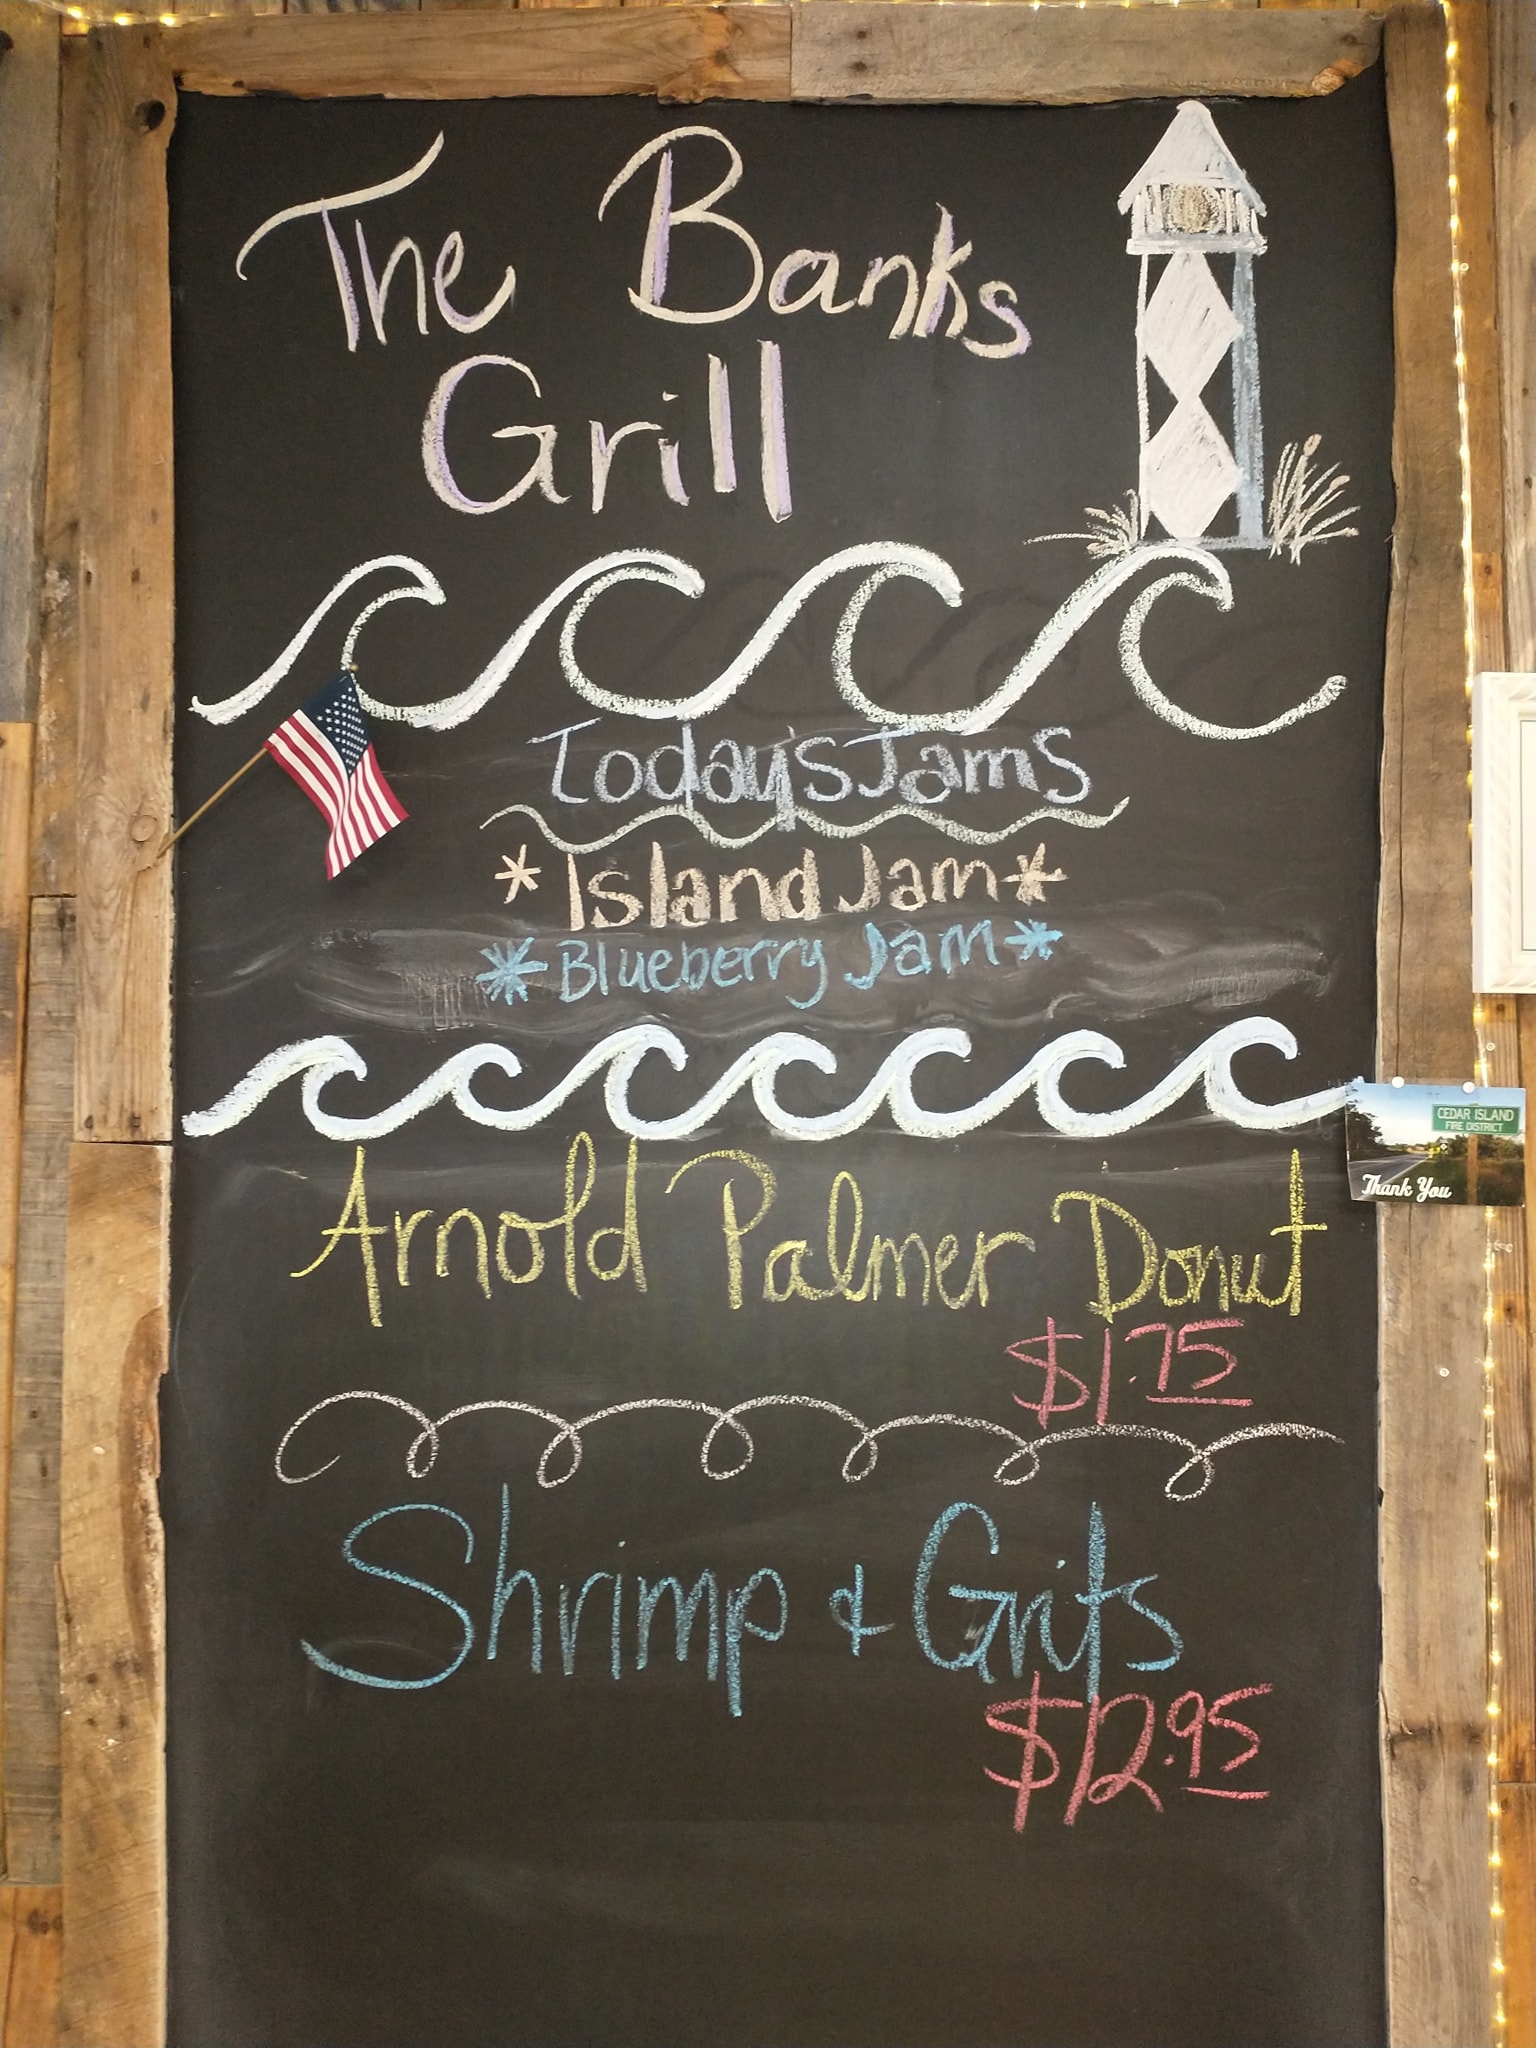 The Banks
Grill
Today's Jams
*Island Jam*
*Blueberry Jam*
CEDAR ISLAND
FIRE DISTRICT
Thank You
Arnold Palmer Donut
$1.75
Shrimp & Grits
$12.95